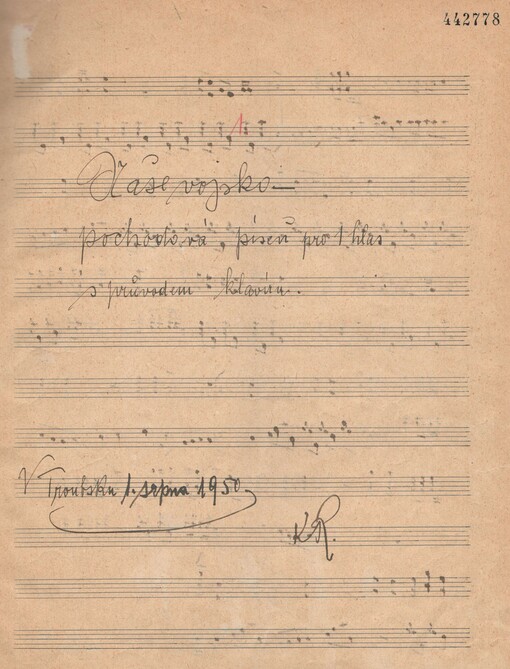 442778
1
Naše vojsko —
pochodová píseň pro 1 hlas
s průvodem klavíru.
V Troubsku 1. srpna 1950
KR.